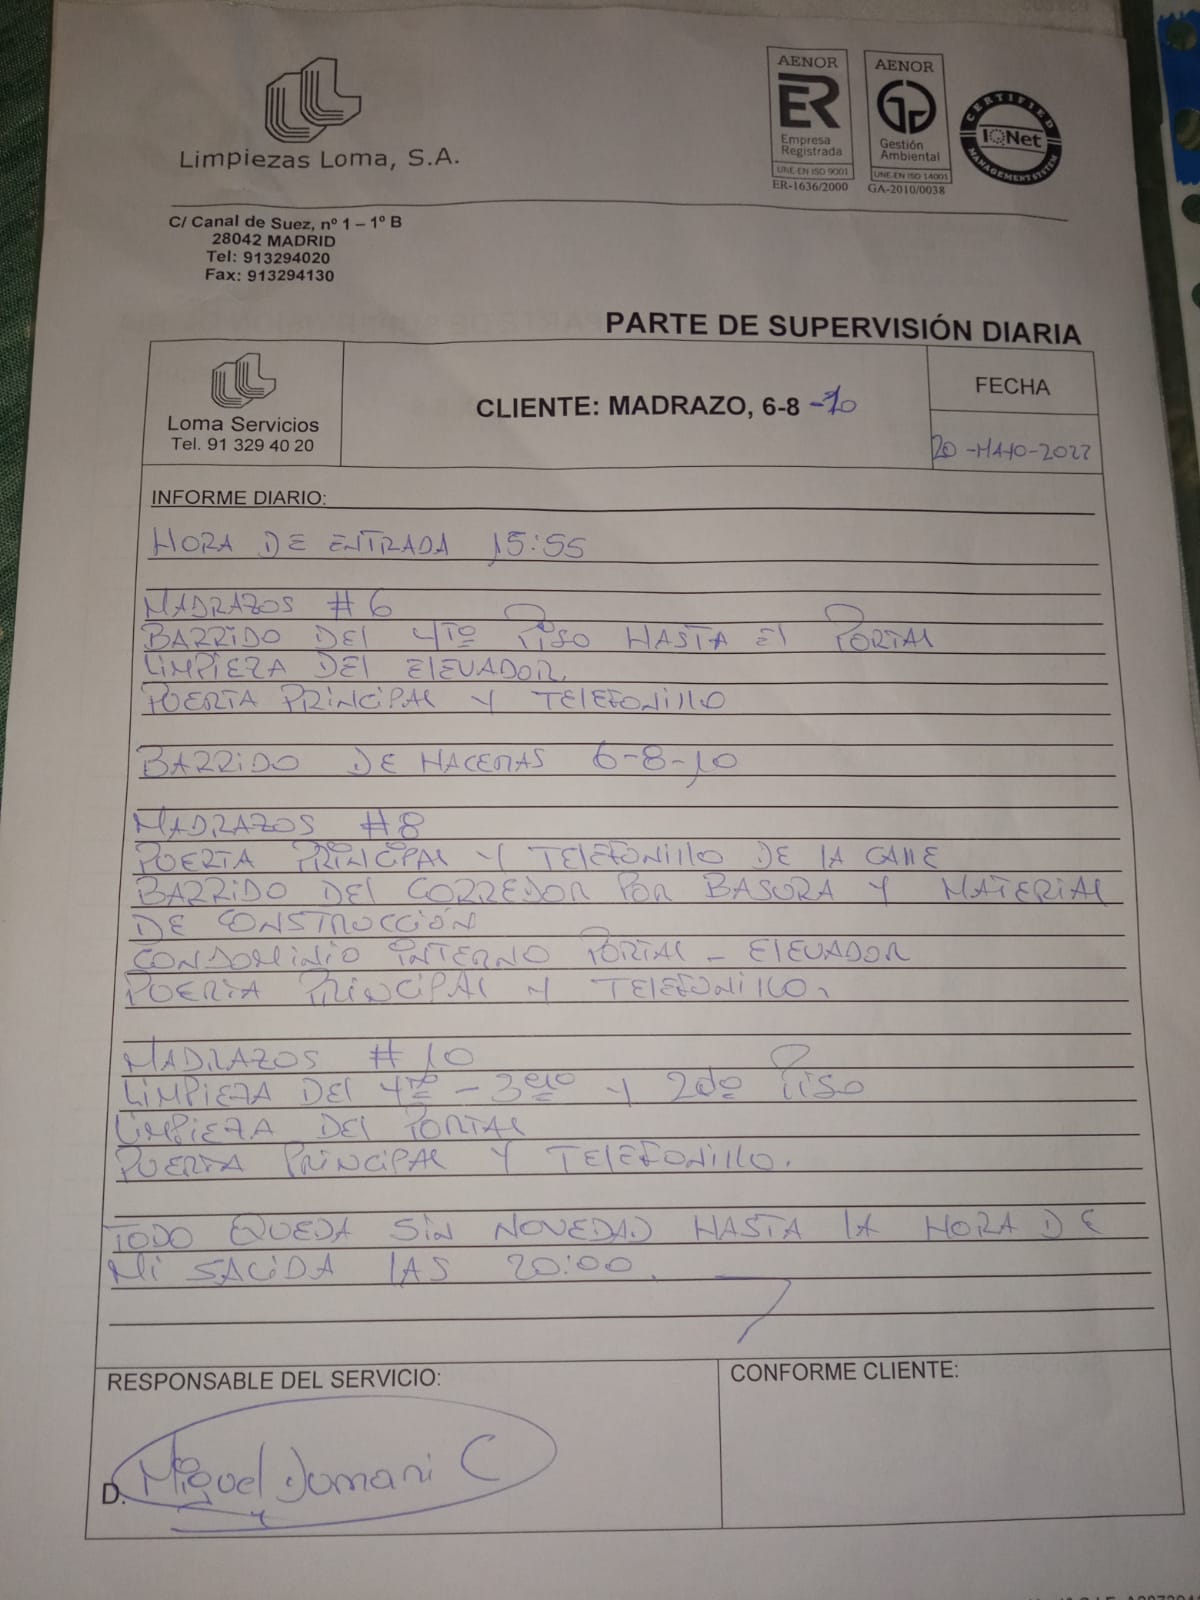 Limpiezas Loma, S.A.
AENOR
ER
Empresa
Registrada
UNE-EN ISO 9001
ER-1636/2000
AENOR
Gestión
Ambiental
UNE-EN ISO 14001
GA-2010/0038
CERTIFIED
IQNet
MANAGEMENT SYSTEM
C/ Canal de Suez, nº 1 – 1º B
28042 MADRID
Tel: 913294020
Fax: 913294130
PARTE DE SUPERVISIÓN DIARIA
Loma Servicios
Tel. 91 329 40 20
CLIENTE: MADRAZO, 6-8 -10
FECHA
20-MAYO-2022
INFORME DIARIO:
HORA DE ENTRADA 15:55
MADRAZOS #6
BARRIDO DEL 4TO PISO HASTA El PORTAL
LIMPIEZA DEL ELEVADOR.
PUERTA PRINCIPAL Y TELEFONILLO
BARRIDO DE HACERAS 6-8-10
MADRAZOS #8
PUERTA PRINCIPAL Y TELEFONILLO DE LA CALLE
BARRIDO DEL CORREDOR POR BASURA Y MATERIAL
DE CONSTRUCCIÓN
CONDOMINIO INTERNO PORTAL - ELEVADOR
PUERTA PRINCIPAL Y TELEFONILLO.
MADRAZOS #10
LIMPIEZA DEL 4TO - 3ero Y 2do PISO
LIMPIEZA DEL PORTAL
PUERTA PRINCIPAL Y TELEFONILLO.
TODO QUEDA SIN NOVEDAD HASTA LA HORA DE
MI SALIDA LAS 20:00.
RESPONSABLE DEL SERVICIO:
CONFORME CLIENTE:
D. Miguel Jumani C